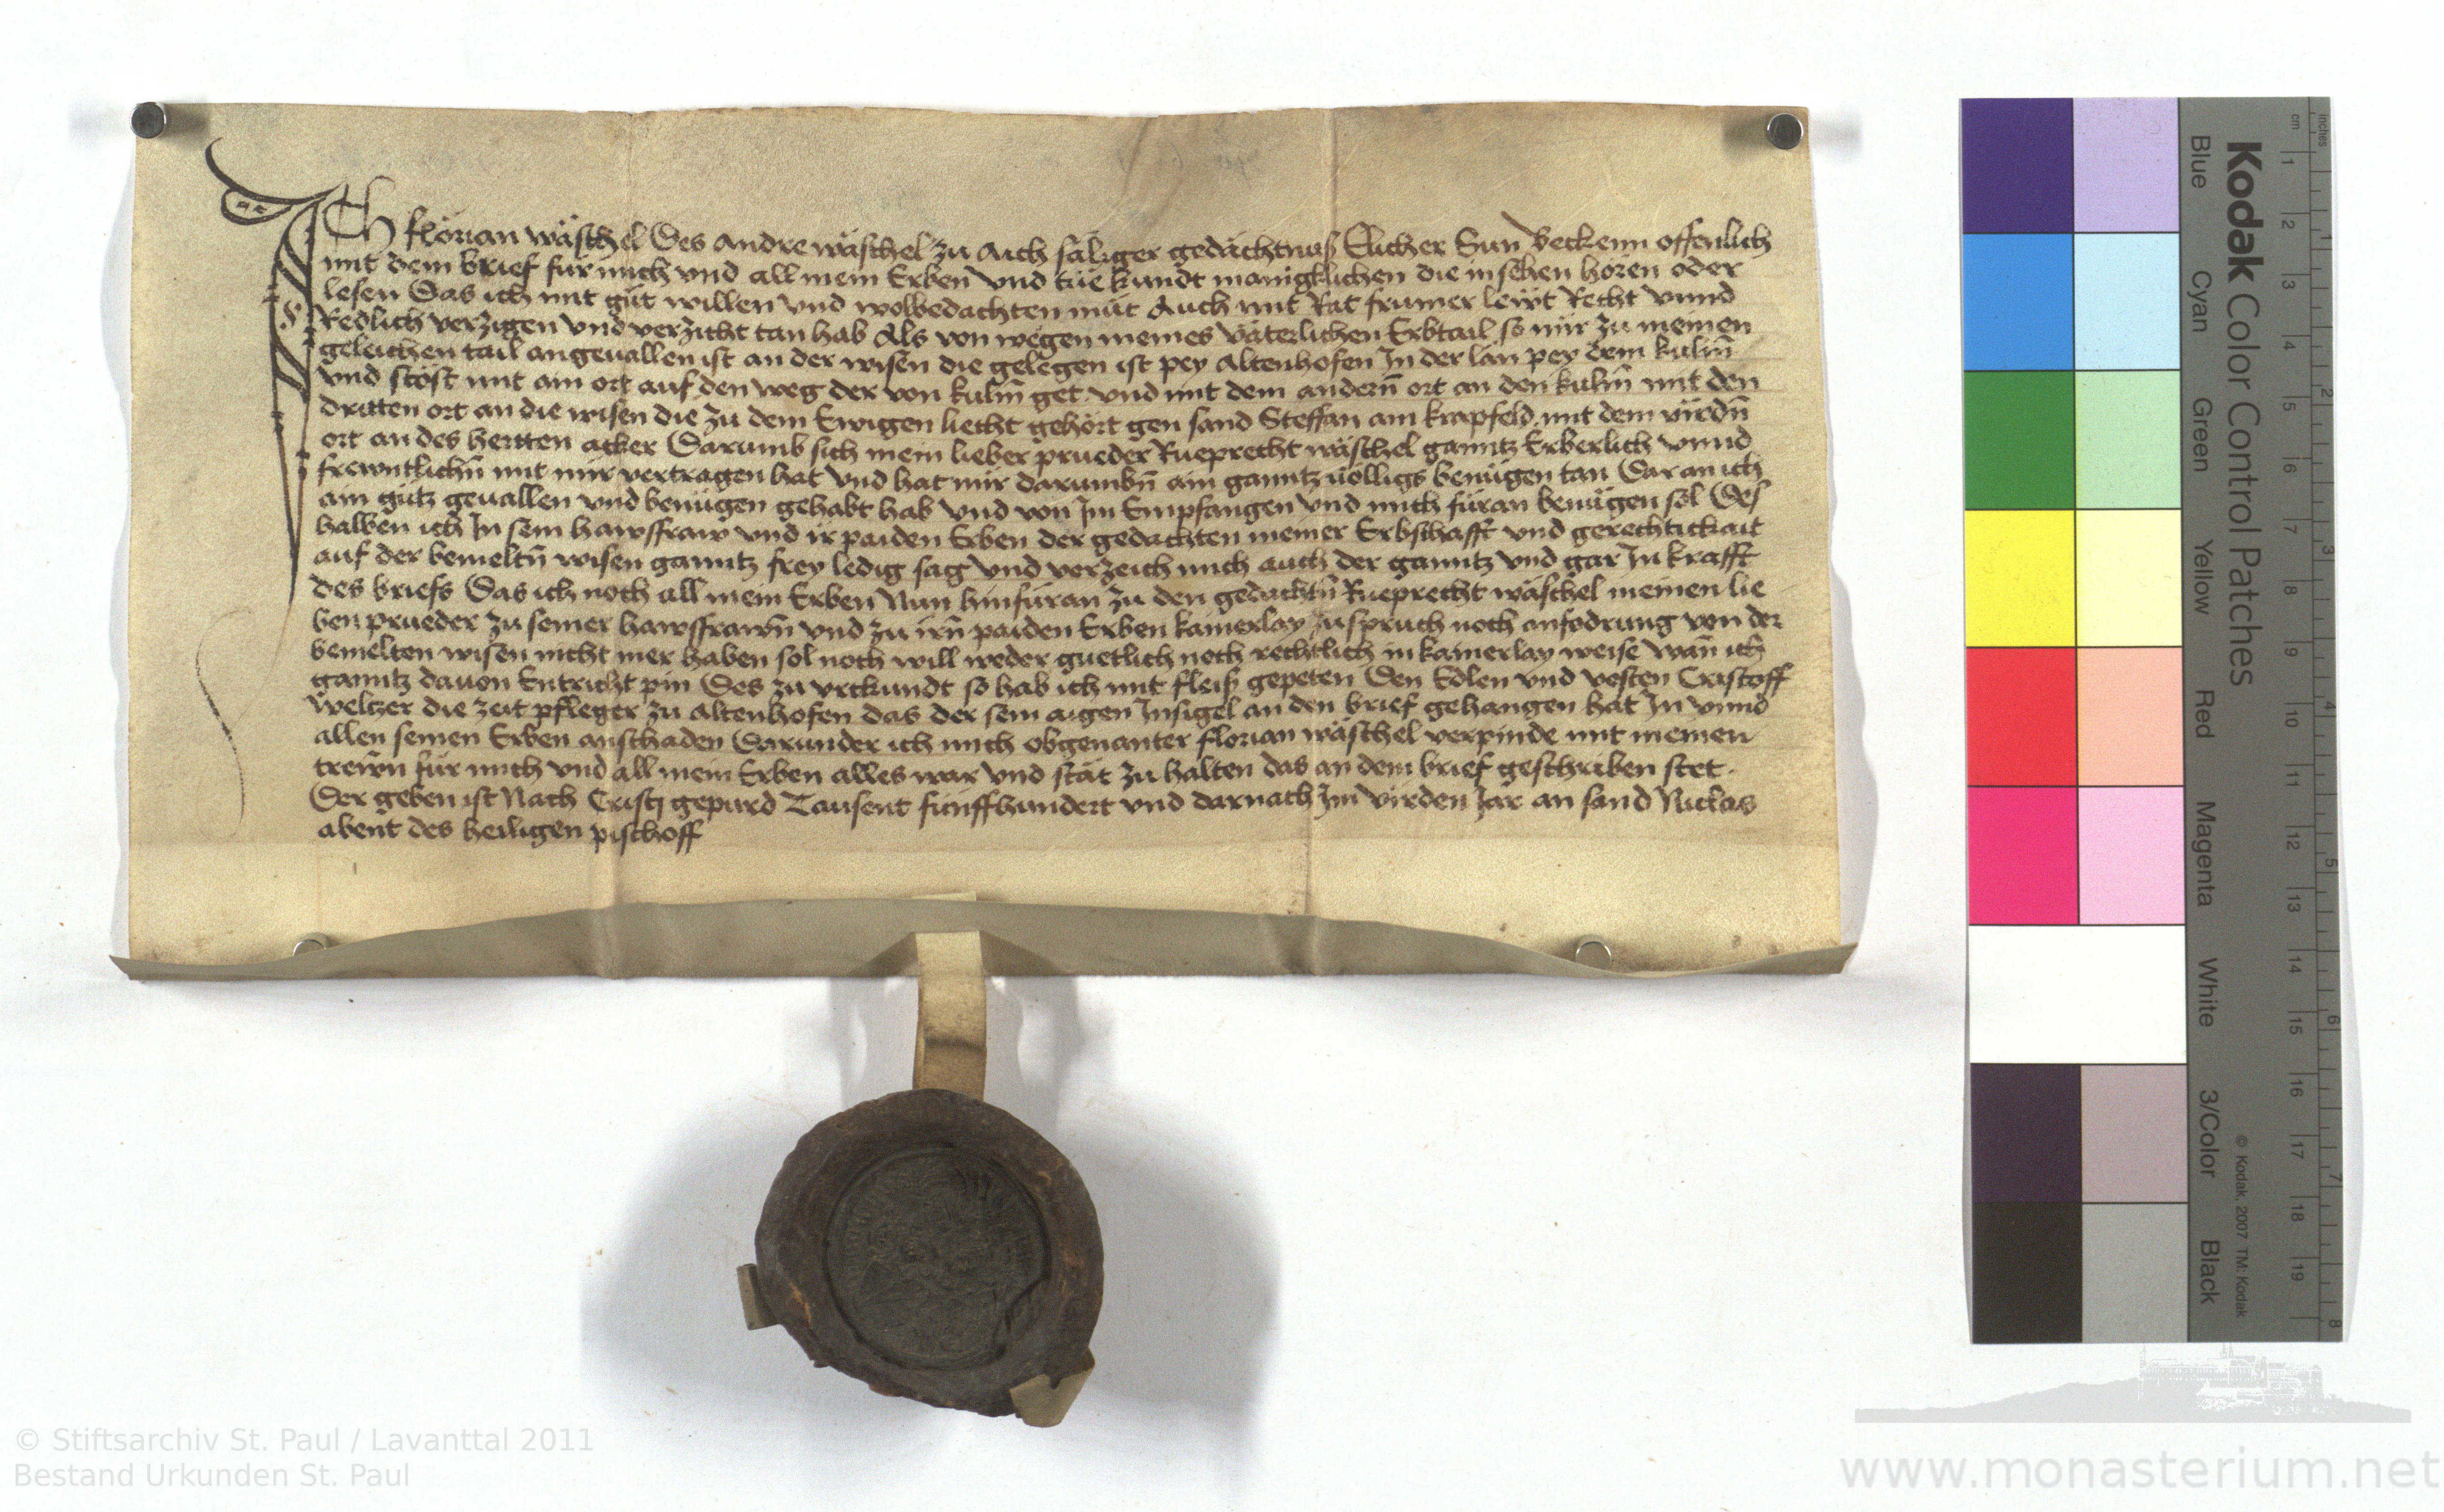 ICh florian wäschel Des Andre wäschel zu Aich säliger gedächtnuß Elicher Sun Beckenn offenlich
mit dem brief für mich vnd all mein Erben Vnd tüe kundt manigklichen die in sehen hören oder
lesen Das ich mit güt willen vnd wolbedachten müt Auch mit Rat frumer lewt Recht vnnd
Redlich verzigen vnd verzicht tan hab Als von wegen meines väterlichen Erbtail so mir zu meinen
geleichen tail angeuallen ist an der wisen die gelegen ist pey Altenhofen In der lan pey dem kulm̄
vnd stöst mit aim ort auf den weg der von kulm̄ get vnd mit dem andern̄ ort an den kulm̄ mit den
dritten ort an die wisen die zu dem Ewigen liecht gehört gen sand Steffan am krapfeld mit dem virdn̄
ort an des acker Darumb sich mein lieber prueder Rueprecht wäschel ganntz Erberlich vnnd
frewntlichn̄ mit mir vertragen hat vnd hat mir darumbn̄ ain ganntz uölligs benügen tan Daran ich
ain gütz geuallen vnd benügen gehabt hab vnd von Im Empfangen vnd mich füran benügen sol Des
halben ich In sein hawsfraw vnd ir paiden Erben der gedachten meiner Erbschafft vnd gerechtickait
auf der bemeltn̄ wisen ganntz frey ledig sag vnd verzeich mich auch der ganntz vnd gar In krafft
des briefs Das ich noch all mein Erben Nun hinfüran zu den gedachtn̄ Rueprecht wäschel meinen lie
ben prueder zu seiner hawsfrawn̄ vnd zu irn̄ paiden Erben kainerlay zuspruch noch anfodrung von der
bemelten wisen nicht mer haben sol noch will weder guetlich noch rechtlich in kainerlay weise wan̄ ich
ganntz dauon Entricht pin Des zu vrckundt so hab ich mit fleiß gepeten Den Edlen vnd vesten Cristoff
weltzer die zeit pfleger zu Altenhofen das der sein aigen Insigel an den brief gehangen hat In vnnd
allen seinen Erben anschaden Darunder ich mich obgenanter florian wäschel verpinde mit meinen
trewn̄ für mich vnd all mein Erben alles war vnd stät zu halten das an dem brief geschriben stet.
Der geben ist Nach Cristj gepurd Tausent fünffhundert vnd darnach Im virden Jar an sand Niclas
abent des heiligen pischoff
Kodak Color Control Patches
Blue Cyan Green Yellow Red Magenta White 3/Color Black
© Kodak, 2007 TM: Kodak
inches 1 2 3 4 5 6 7 8
cm 1 2 3 4 5 6 7 8 9 10 11 12 13 14 15 16 17 18 19
© Stiftsarchiv St. Paul / Lavanttal 2011
Bestand Urkunden St. Paul
www.monasterium.net